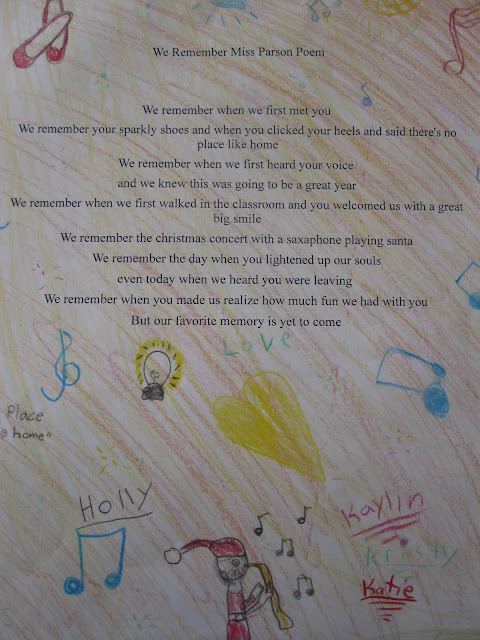 We Remember Miss Parson Poem
We remember when we first met you
We remember your sparkly shoes and when you clicked your heels and said there's no
place like home
We remember when we first heard your voice
and we knew this was going to be a great year
We remember when we first walked in the classroom and you welcomed us with a great
big smile
We remember the christmas concert with a saxaphone playing santa
We remember the day when you lightened up our souls
even today when we heard you were leaving
We remember when you made us realize how much fun we had with you
But our favorite memory is yet to come
Love
Place
home"
Holly
Kaylin
Kristy
Katie